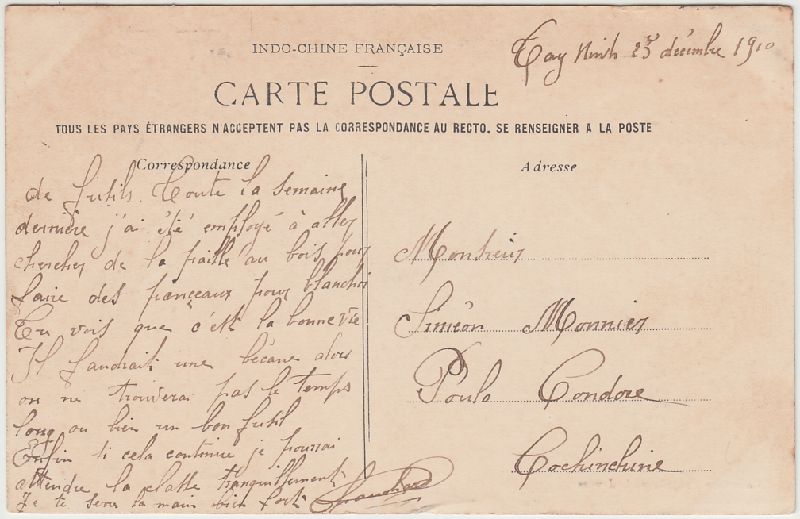 INDO-CHINE FRANÇAISE
Tay Ninh 23 décembre 1910
CARTE POSTALE
TOUS LES PAYS ÉTRANGERS N'ACCEPTENT PAS LA CORRESPONDANCE AU RECTO. SE RENSEIGNER A LA POSTE
Correspondance
de fusils. Toute la semaine
dernière j'ai été employé à aller
chercher de la paille au bois pour
faire des pour blanchir
Tu vois que c'est la bonne vie
Il faudrait une bécane alors
on ne trouverai pas le temps
long ou bien un bon fusil
Enfin si cela continue je pourrai
attendre la classe tranquillement
Je te serre la main bien fort
Adresse
Monsieur
Siméon Monnier
Poulo Condore
Cochinchine